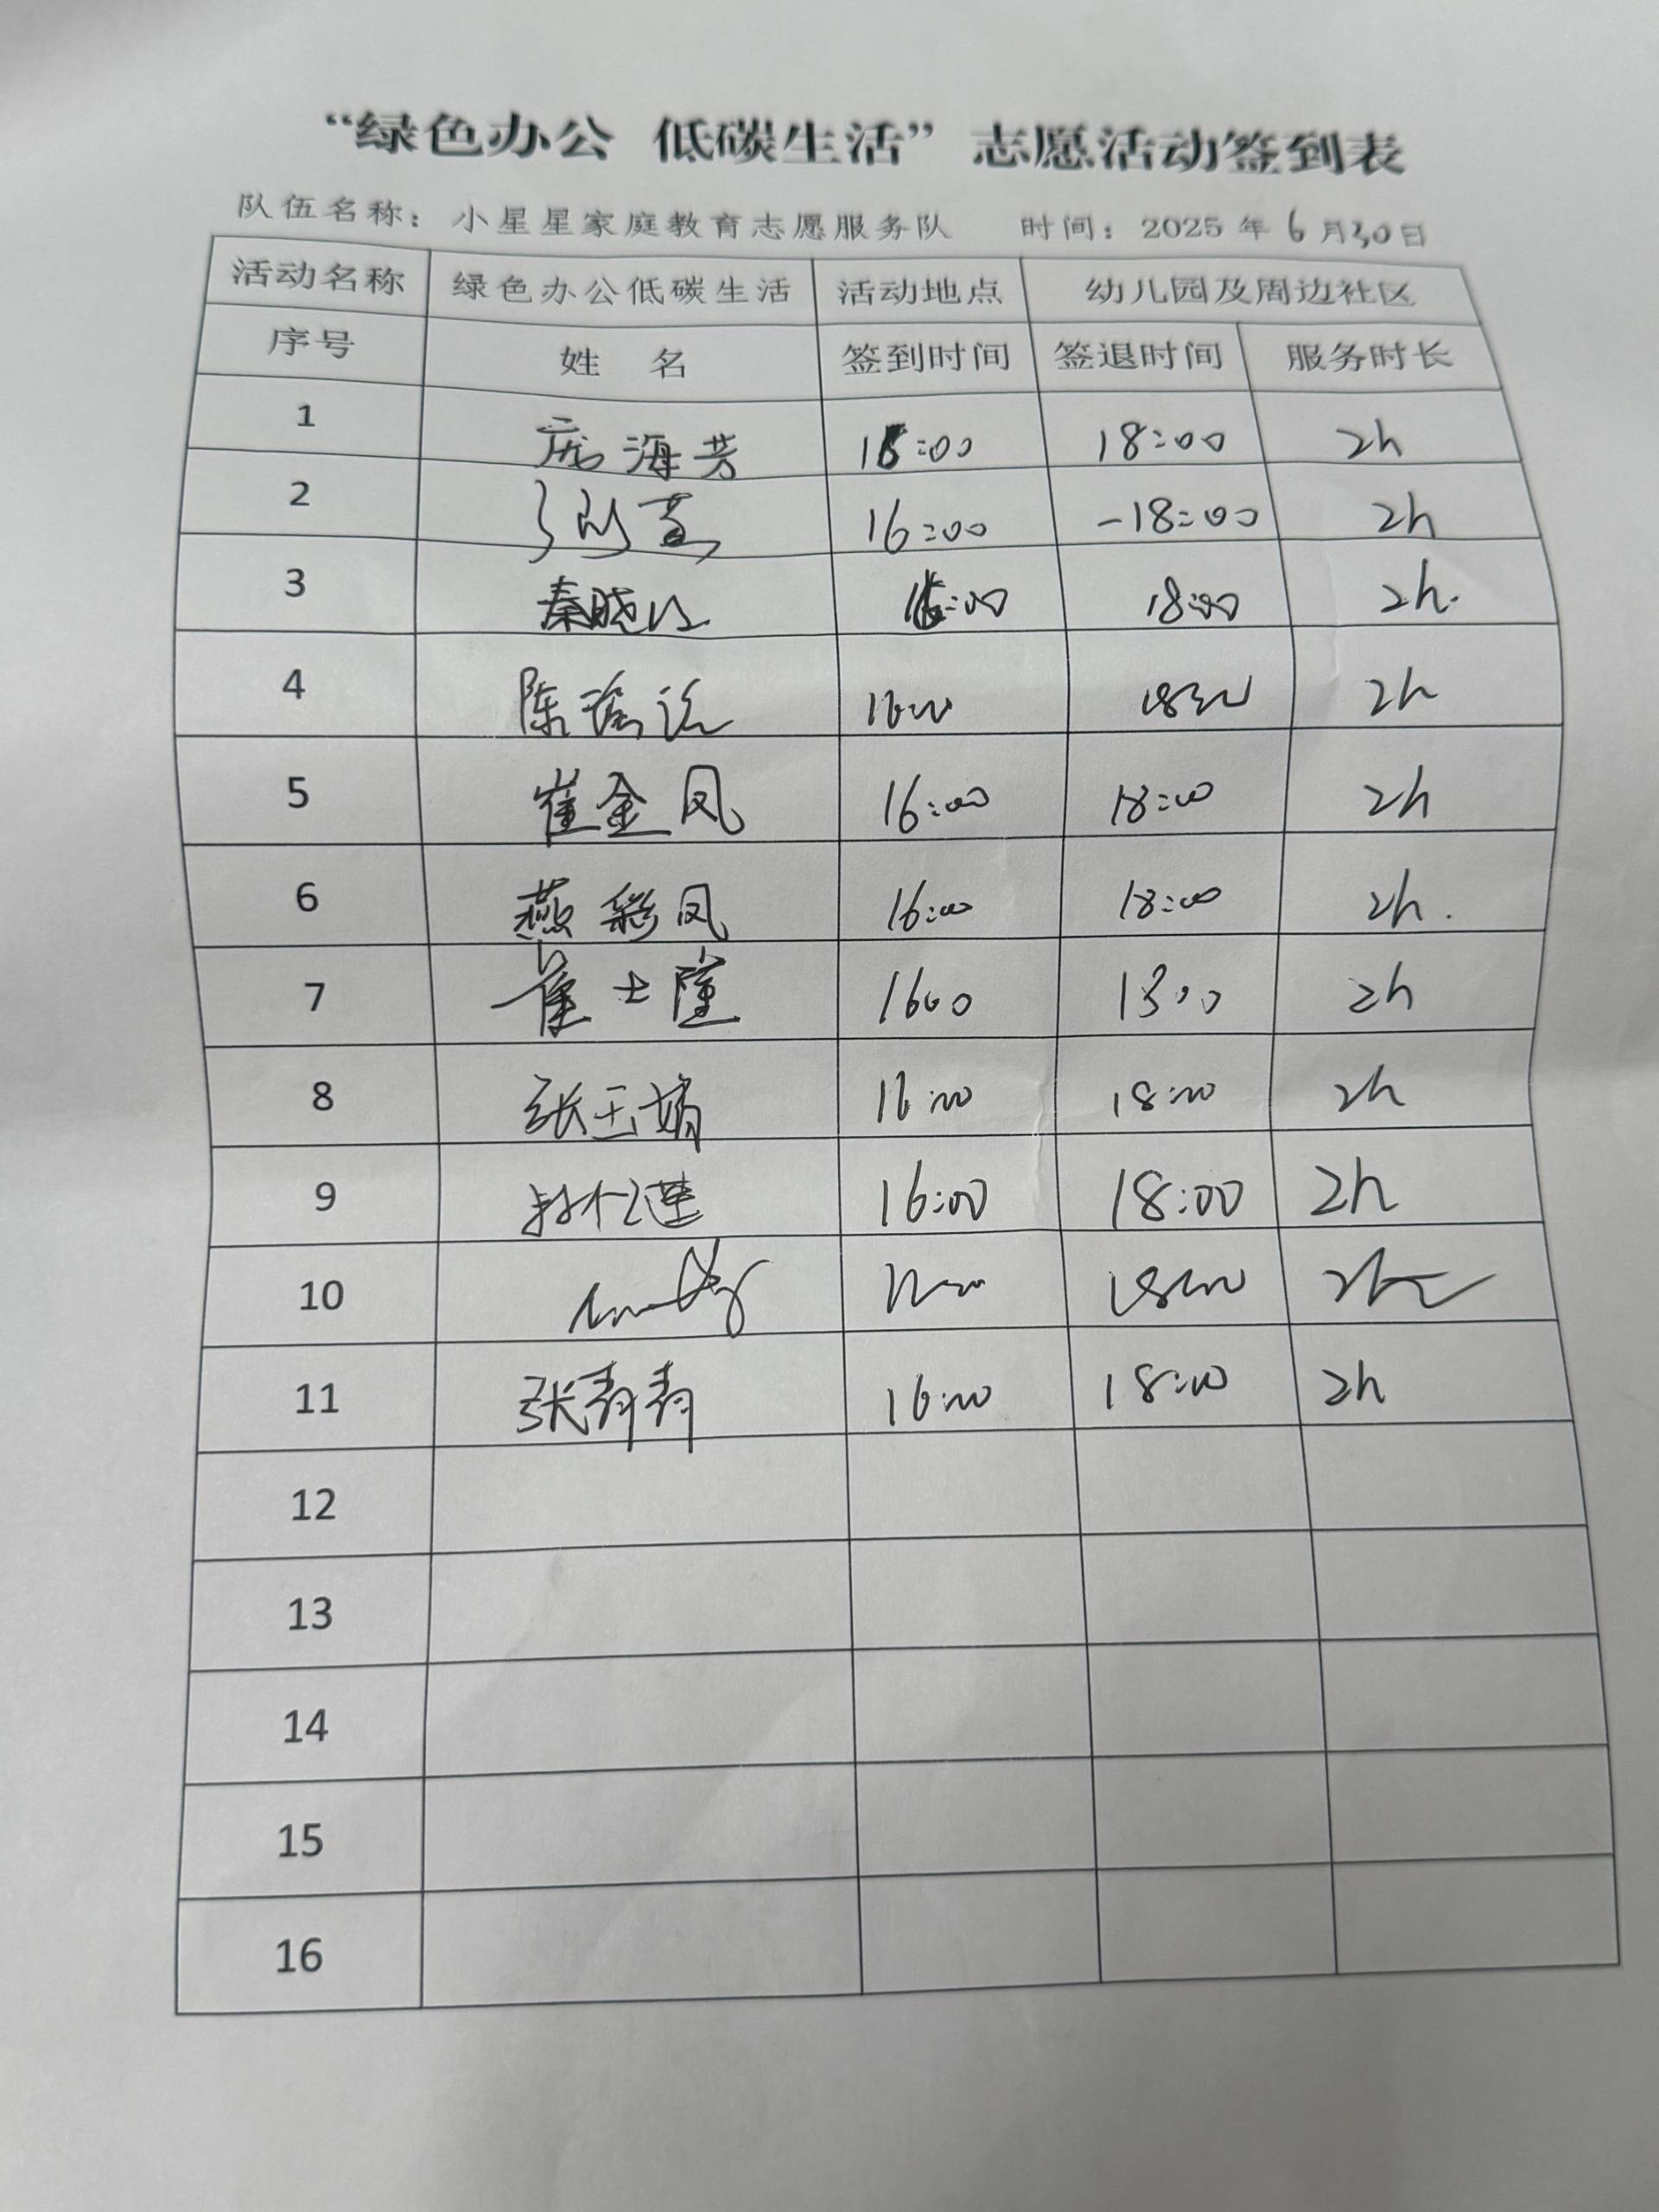 “绿色办公 低碳生活”志愿活动签到表
队伍名称：小星星家庭教育志愿服务队 时间：2025年6月30日
活动名称 绿色办公低碳生活 活动地点 幼儿园及周边社区
序号 姓 名 签到时间 签退时间 服务时长
1 庞海芳 16:00 18:00 2h
2 16:00 -18:00 2h
3 秦晓 16:00 18:00 2h.
4 陈 16:00 18:00 2h
5 崔金凤 16:00 18:00 2h
6 燕彩凤 16:00 18:00 2h.
7 崔士 1600 1800 2h
8 张玉娟 16:00 18:00 2h
9 16:00 18:00 2h
10 18:00
11 张青青 16:00 18:00 2h
12
13
14
15
16